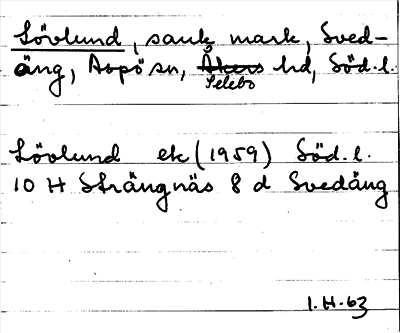 Lövlund, sank mark, Sved-
äng, Aspö sn, Åkers hd, Söd.l.
Selebo
Lövlund ek (1959) Söd.l.
10 H Strängnäs 8 d Svedäng
1.H.63